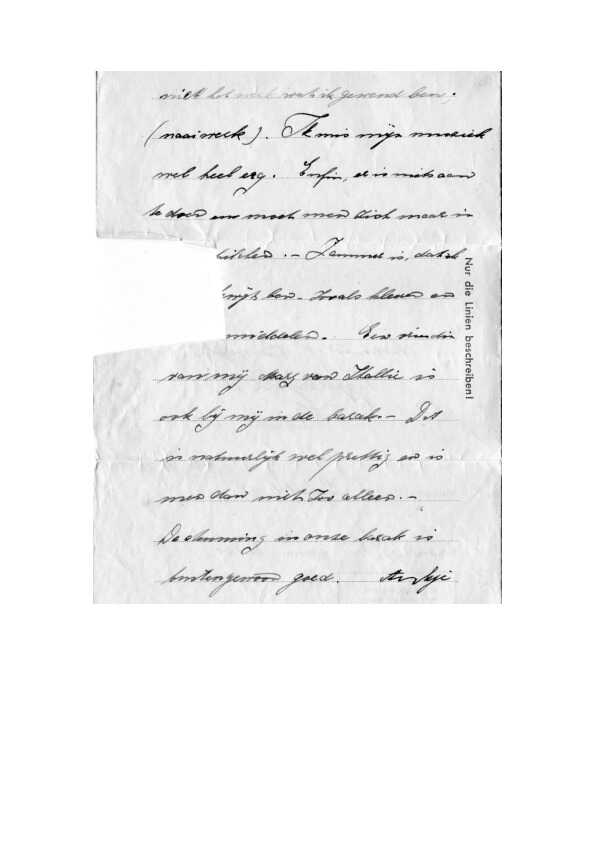 niet het werk wat ik gewend ben,
(naaiwerk). Ik mis mijn muziek
wel heel erg. Enfin, er is niets aan
te doen en moet men zich maar in
schikken. – Jammer is, dat ik
kwijt ben. Zooals kleren en
middelen. Een vriendin
van mij van Hallie is
ook bij mij in de barak. – Dit
is natuurlijk wel prettig en is
men dan niet zoo alleen. –
De stemming in onze barak is
buitengewoon goed.
Nur die Linien beschreiben!